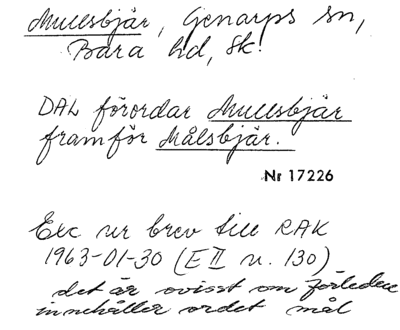 Mullsbjär, Genarps sn,
Bara hd, Sk.
DAL förordar Mullsbjär
framför Målsbjär.
Nr 17226
Exc ur brev till RAK
1963-01-30 (E II u. 130)
det är ovisst om förleden
innehåller ordet mål